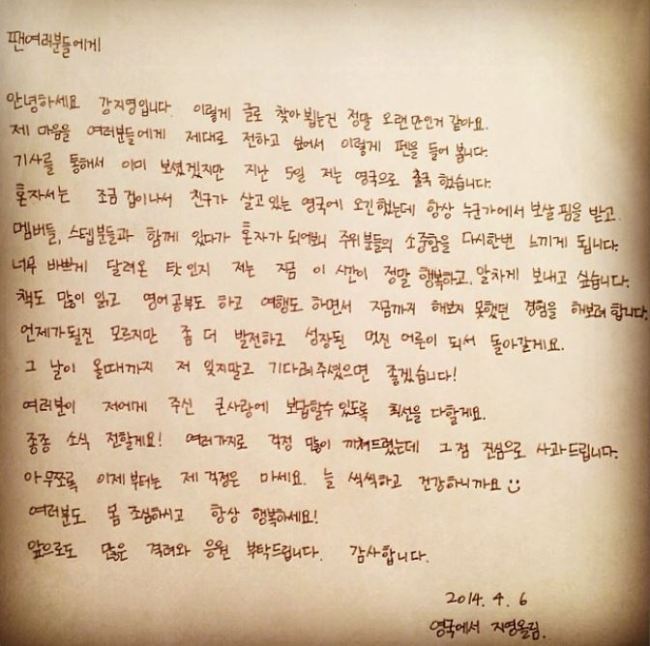 팬여러분들에게
안녕하세요 강지영입니다. 이렇게 글로 찾아뵙는건 정말 오랜만인거 같아요.
제 마음을 여러분들에게 제대로 전하고 싶어서 이렇게 펜을 들어 봅니다.
기사를 통해서 이미 보셨겠지만 지난 5일 저는 영국으로 출국 했습니다.
혼자서는 조금 겁이나서 친구가 살고있는 영국에 오긴했는데 항상 누군가에서 보살핌을 받고.
멤버들, 스텝분들과 함께 있다가 혼자가 되어보니 주위분들의 소중함을 다시한번 느끼게 됩니다.
너무 바쁘게 달려온 탓인지 저는 지금 이 시간이 정말 행복하고, 알차게 보내고 싶습니다.
책도 많이 읽고 영어공부도 하고 여행도 하면서 지금까지 해보지 못했던 경험을 해보려 합니다.
언제가될진 모르지만 좀 더 발전하고 성장된 멋진 어른이 되서 돌아갈게요.
그 날이 올때까지 저 잊지말고 기다려주셨으면 좋겠습니다!
여러분이 저에게 주신 큰사랑에 보답할수 있도록 최선을 다할게요.
종종 소식 전할게요! 여러가지로 걱정 많이 끼쳐드렸는데 그 점 진심으로 사과드립니다.
아무쪼록 이제부터는 제 걱정은 마세요. 늘 씩씩하고 건강하니까요
여러분도 몸 조심하시고 항상 행복하세요!
앞으로도 많은 격려와 응원 부탁드립니다. 감사합니다.
2014. 4. 6
영국에서 지영올림.